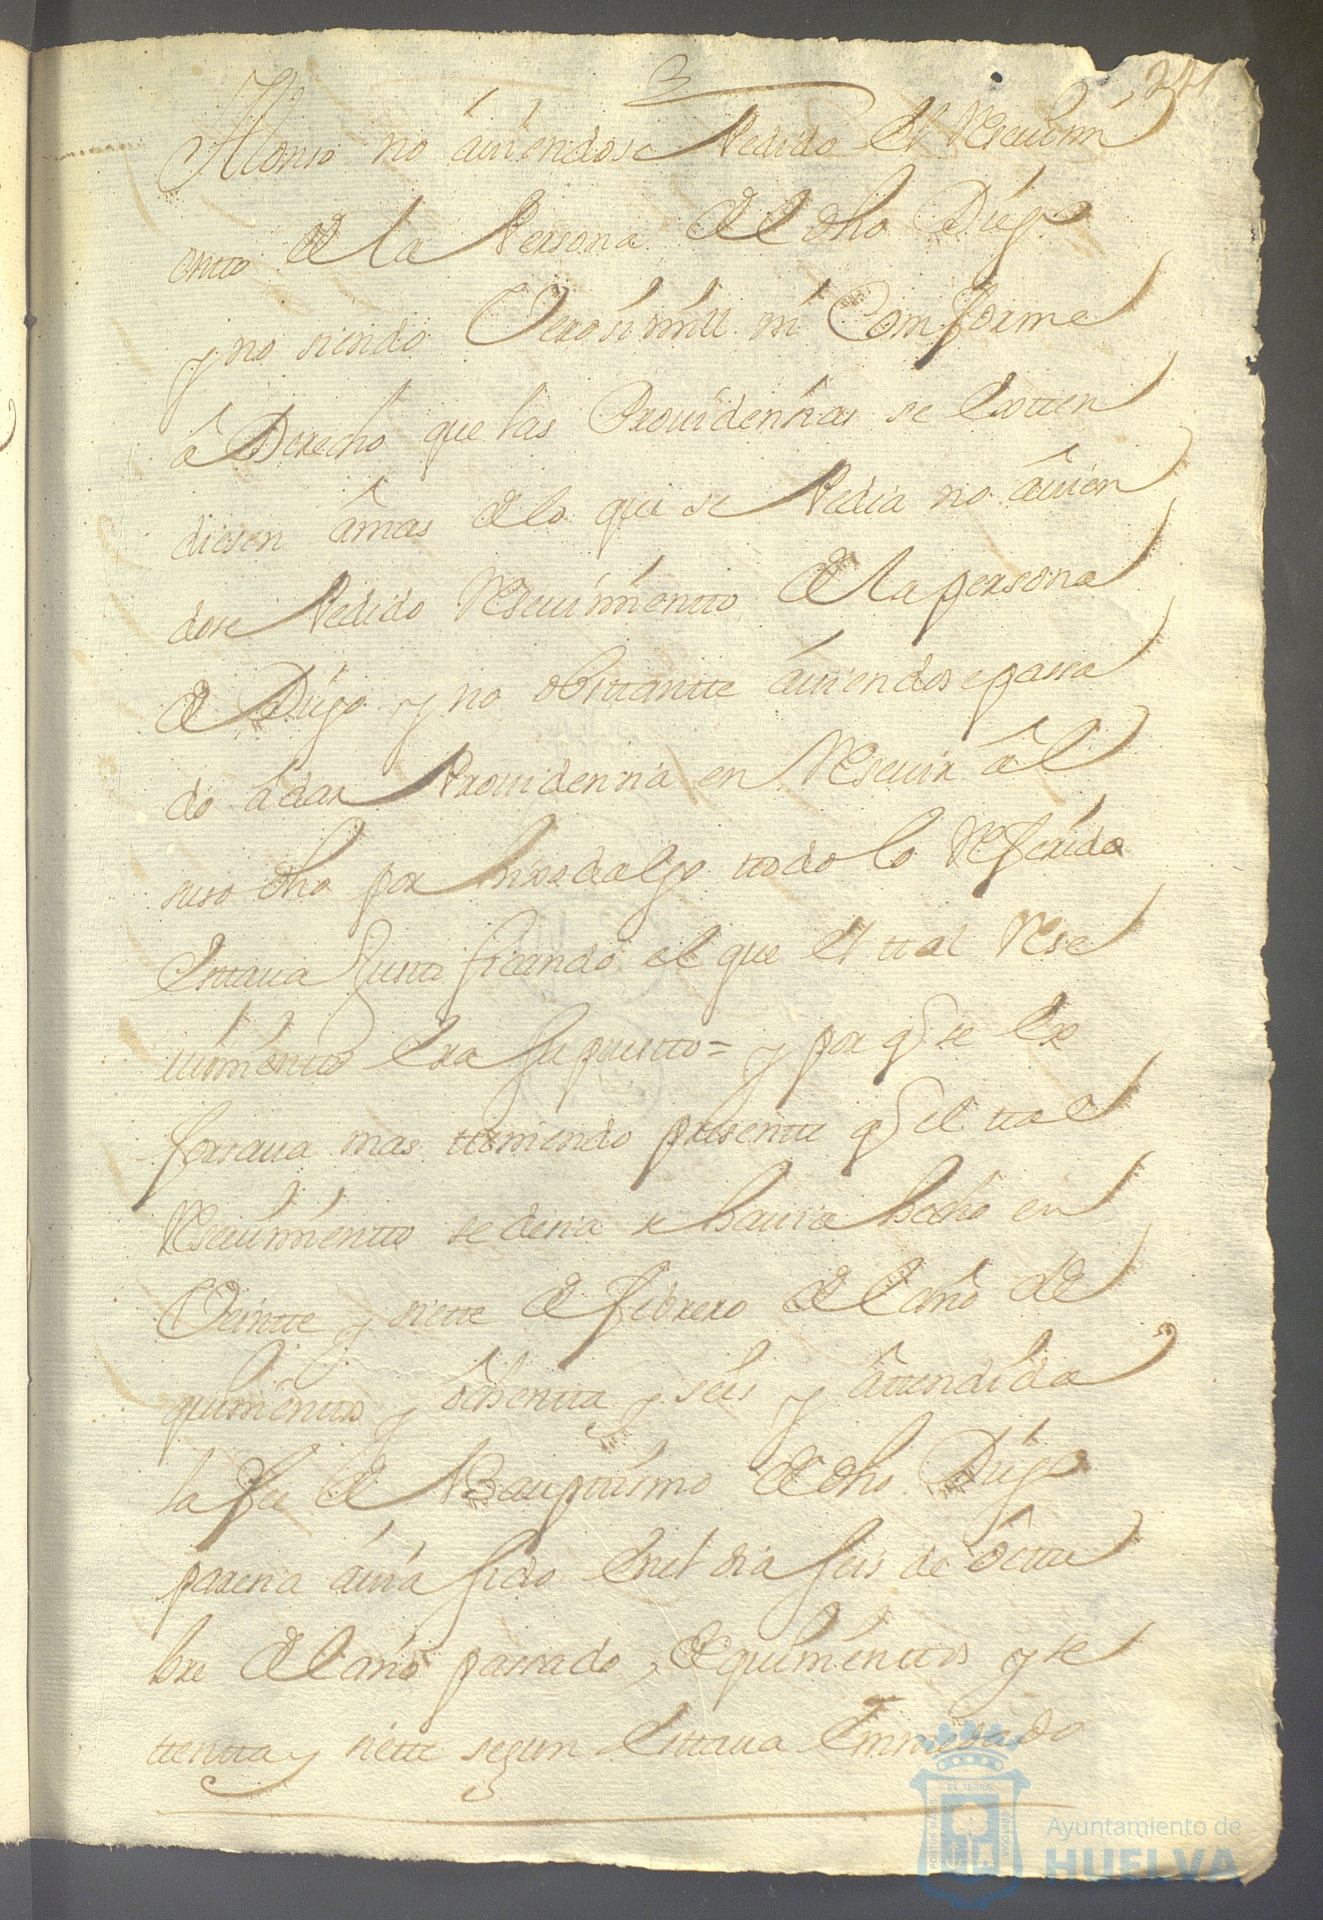 3
241
Alonso no auiendose Pedido el Resciuim
entto de la Persona del dho Diego
y no siendo Verosimill ni Comforme
â Derecho que las Prouidenzias se Extten
diesen âmas de lo que se Pedia no âuien
dose Pedido Resciuimientto de la persona
de Diego y no obsttantte auiendose passa
do âdar Prouidenzia en Resciuir âl
suso dho por hixodalgo ttodo lo Referido
Esttaua Justtificando el que el ttal Resce
uimientto Era Supuestto = y por q se Ex
forsaua mas tteniendo presentte q el ttal
Resciuimientto se dezia se hauia hecho en
Veintte y siette de febrero del año de
quinienttos y ôchentta y seis y âttendida
la fee de Bauptismo de dho Diego
parezia auia sido En el dia seis de ôcttu
bre del año passado de quinienttos y se
ttentta y siette segun Esttaua
Ayuntamiento de
HUELVA